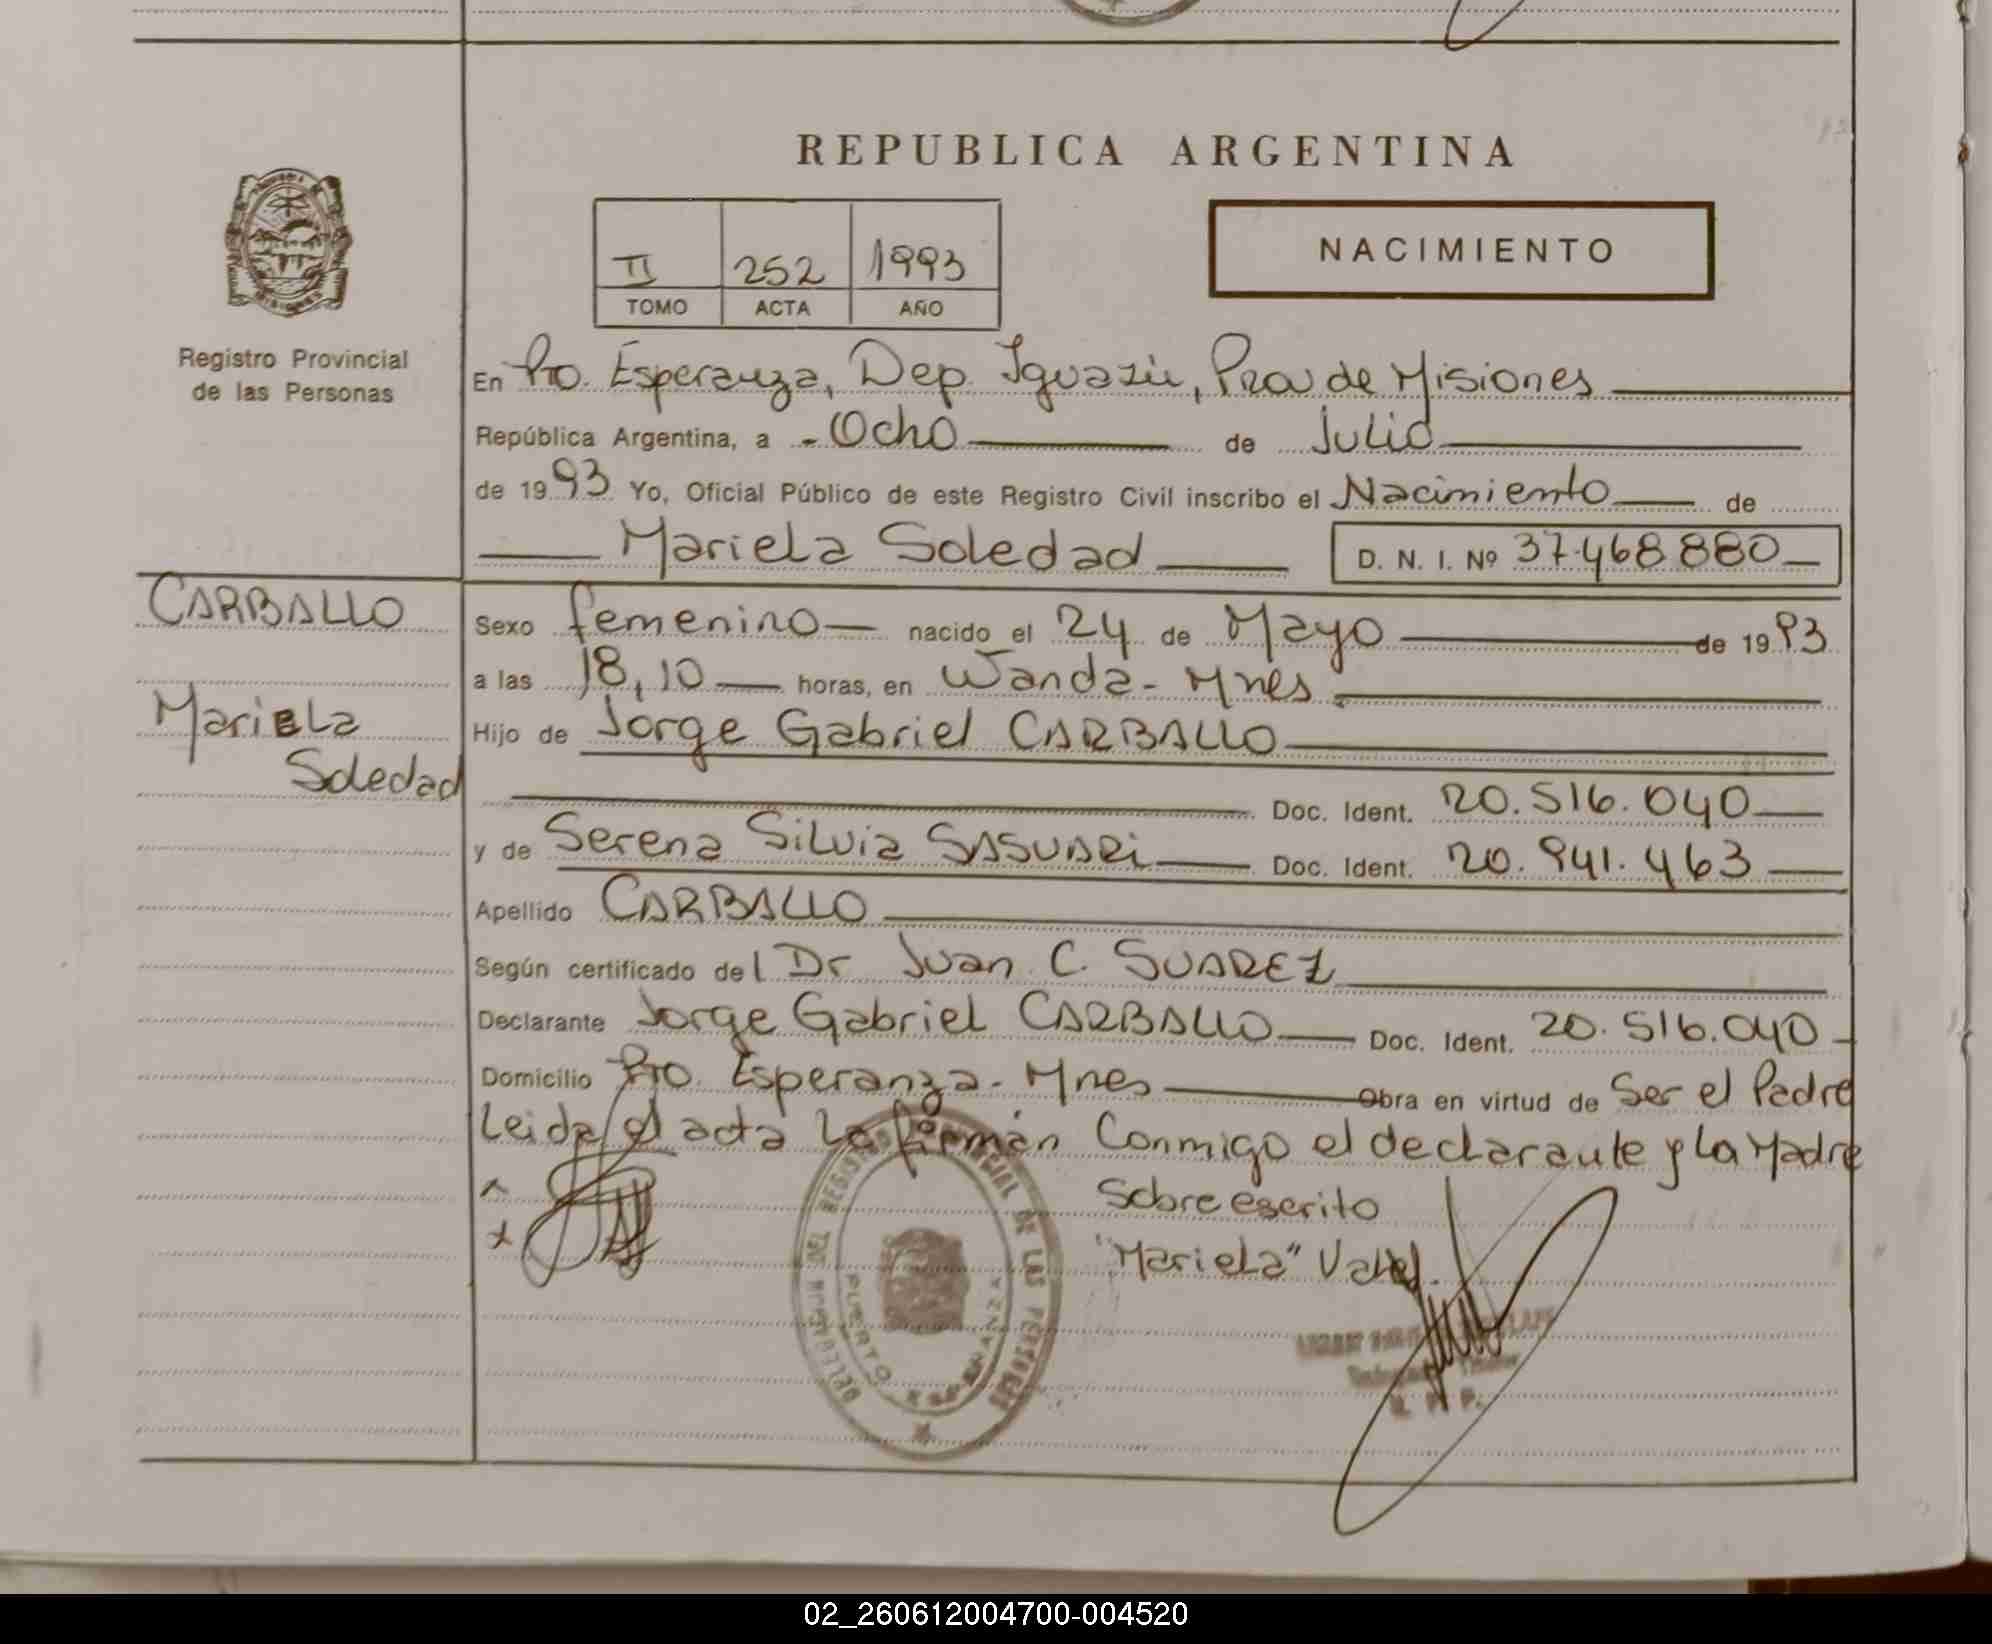 REPUBLICA ARGENTINA
II 252 1993
TOMO ACTA AÑO
NACIMIENTO
MISIONES
Registro Provincial
de las Personas
En Pto. Esperanza, Dep. Iguazú, Prov de Misiones
República Argentina, a Ocho de Julio
de 1993 Yo, Oficial Público de este Registro Civil inscribo el Nacimiento de
Mariela Soledad D. N. I. Nº 37.468.880
CARBALLO
Mariela
Soledad
Sexo femenino nacido el 24 de Mayo de 1993
a las 18,10 horas, en Wanda - Mnes
Hijo de Jorge Gabriel CARBALLO
Doc. Ident. 20.516.040
y de Serena Silvia SASUARi Doc. Ident. 20.941.463
Apellido CARBALLO
Según certificado del Dr Juan C. SUAREZ
Declarante Jorge Gabriel CARBALLO Doc. Ident. 20.516.040
Domicilio Pto. Esperanza - Mnes Obra en virtud de Ser el Padre
Leida el acta la firmán Conmigo el declarante y la Madre
Sobreescrito
"Mariela" Vale.
DELEGACION DEL REGISTRO PROVINCIAL DE LAS PERSONAS
PUERTO ESPERANZA
Titular
R. P. P.
02_260612004700-004520